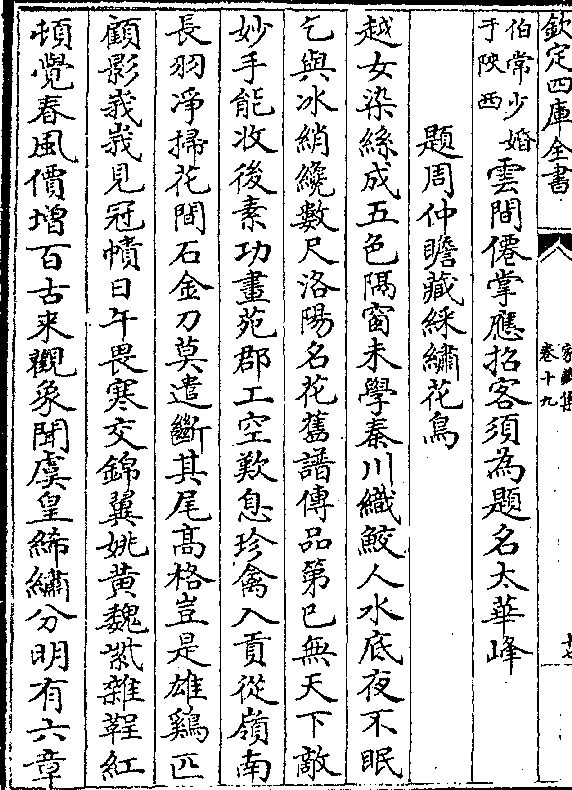 欽定四庫全書
家藏集
卷十九
伯常少婚
于陝西
雲間僊掌應招客須為題名太華峰
題周仲瞻藏綵繡花鳥
越女染絲成五色隔窗未學秦川織鮫人水底夜不眠
乞與冰綃纔數尺洛陽名花舊譜傳品第已無天下敵
妙手能收後素功畫苑郡工空歎息珍禽入貢從嶺南
長羽凈掃花間石金刀莫遣斷其尾高格豈是雄鷄匹
顧影峩峩見冠幘日午畏寒交錦翼姚黄魏紫雜鞓紅
頓覺春風價增百古來觀象聞虞皇絺繡分明有六章